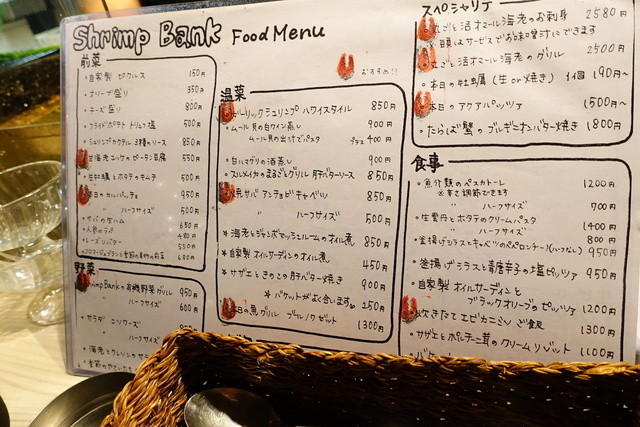 Shrimp Bank Food Menu
おすすめ!!
前菜
・自家製 ピクルス 150円
・オリーブ盛り 350円
・チーズ盛り 800円
・フライドポテト トリュフ塩 500円
・シュリンプカクテル 3種のソース 850円
甘海老ユッケのピータン豆腐 550円
・生牡蠣とホタテのキムチ 500円
本日のカルパッチョ 950円
〃 ハーフサイズ 500円
・サバの生ハム 650円
・レーズンバター
野菜
Shrimp Bankの有機野菜グリル 950円
〃 ハーフサイズ 600円
・サラダ ニソワーズ
〃 ハーフサイズ
温菜
ガーリックシュリンプ ハワイスタイル 850円
・ムール貝の白ワイン蒸し 900円
ムール貝の出汁でパスタ プラス 400円
・白ハマグリの酒蒸し 900円
・スルメイカのまるごとグリル 肝バターソース 850円
燻サバ アンチョビキャベツ 850円
〃 ハーフサイズ 500円
・海老とジャンボマッシュルームのオイル煮 850円
・自家製 オイルサーディンのオイル煮 450円
・サザエときのこ 肝バター焼き 900円
バケットがよく合います 250円
本日の魚グリル ブールノワゼット 1300円
スペシャリテ
丸ごと活オマール海老のお刺身 2580円
※頭はサービスでお味噌汁にできます
丸ごと活オマール海老のグリル 2500円
・本日の牡蠣 (生or焼き) 1個 190円〜
本日のアクアパッツァ 1500円〜
・たらば蟹のブルギニオンバター焼き 1800円
食事
・魚介類のペスカトーレ 1200円
※辛さ調節できます
〃 ハーフサイズ 700円
・生雲丹とホタテのクリームパスタ 1400円
〃 ハーフサイズ 800円
・釜揚げシラスとキャベツのペペロンチーノ 950円
・釜揚げシラスと青唐辛子の塩ピッツァ 950円
・自家製 オイルサーディンと
ブラックオリーブのピッツァ 1200円
炊きたてエビカニミソご飯 1300円
・サザエとポルチーニ茸のクリームリゾット 1100円